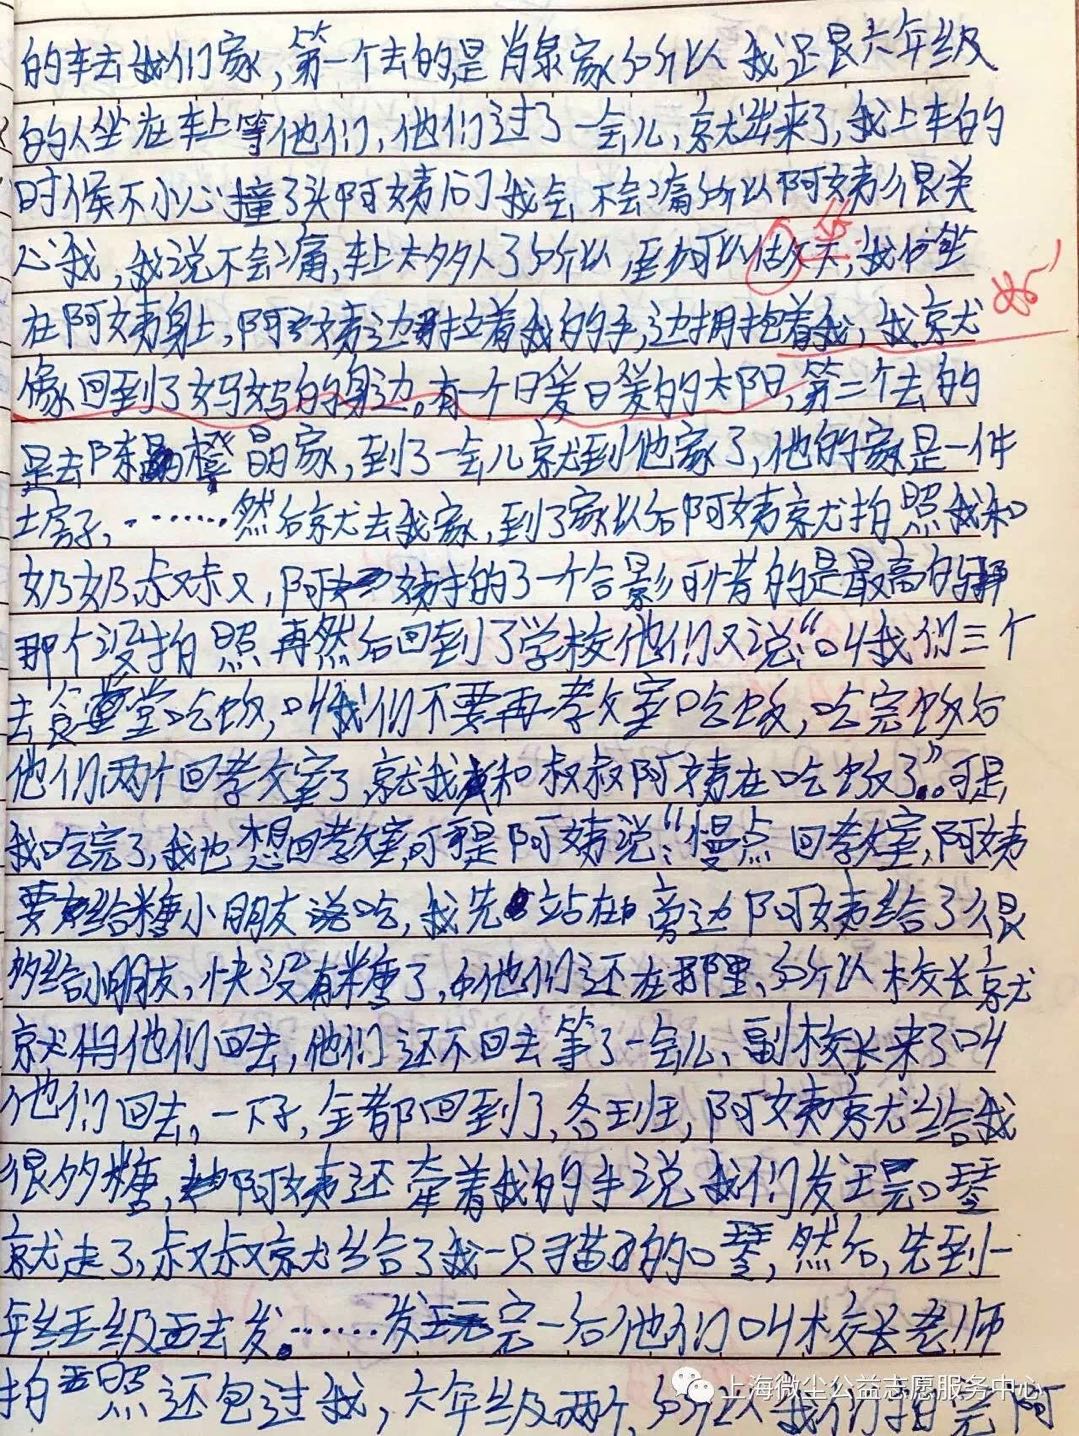 的车去我们家,第一个去的是肖泉家所以我还跟六年级
的人坐在车上等他们,他们过了一会儿,就出来了,我上车的
时候不小心撞了头阿姨问我会不会痛所以阿姨很关
心我,我说不会痛,车上太多人了所以,
在阿姨身上,阿姨边拉着我的手,边拥抱着我,我就
好
像回到了妈妈的身边。有一个日爱日爱的太阳,第二个去的
是去陈晶家,到了一会儿就到他家了,他的家是一件
土房子,……然后就去我家,到了家以后阿姨就拍照我和
奶奶叔叔,阿姨拍的了一个合影可惜的是最高的
那个没拍照再然后回到了学校他们又说:“叫我们三个
去食堂吃饭,叫我们不要再教室吃饭,吃完饭后
他们两个回教室了,就我和叔叔阿姨在吃饭了。”可是,
我吃完了,我也想回教室,可是阿姨说:“慢点回教室,阿姨
要给糖小朋友吃,我先站在旁边阿姨给了很
多给小朋友,快没有糖了,他们还在那里,所以校长就
就叫他们回去,他们还不回去等了一会儿,副校长来了叫
他们回去,一下子,全都回到了,各班,阿姨就给我
很多糖,阿姨还牵着我的手说我们发完口琴
就走了,叔叔就给了我一只猫的口琴,然后,先到一
年级去发。……发完一后他们叫校长老师
拍照还包过我,六年级两个,所以我们拍完阿
上海微尘公益志愿服务中心